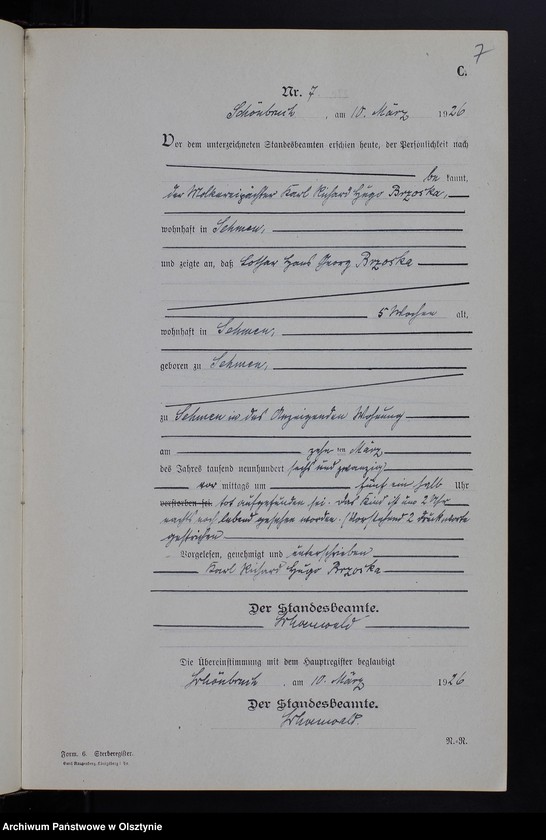 7
C.
Nr. 7
Schönbruch, am 10. März 1926
Vor dem unterzeichneten Standesbeamten erschien heute, der Persönlichkeit nach
be kannt,
der Molkereipächter Karl Richard Hugo Brzoska,
wohnhaft in Sehmen,
und zeigte an, daß Lothar Hans Georg Brzoska
5 Wochen alt,
wohnhaft in Sehmen,
geboren zu Sehmen,
zu Sehmen in des Anzeigenden Wohnung
am zehn ten März
des Jahres tausend neunhundert sechs und zwanzig
vor mittags um fünf ein halb Uhr
verstorben sei. tot aufgefunden sei. Das Kind ist um 2 Uhr
nachts noch lebend gesehen worden. (Vorstehend 2 Druckworte
gestrichen.
Vorgelesen, genehmigt und unterschrieben
Karl Richard Hugo Brzoska
Der Standesbeamte.
Die Übereinstimmung mit dem Hauptregister beglaubigt
Schönbruch, am 10. März 1926
Der Standesbeamte.
R.-R.
Form. 6. Sterberegister.
Archiwum Państwowe w Olsztynie